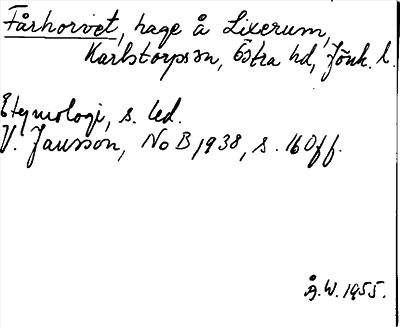 Fårhorvet, hage å Lixerum,
Karlstorps sn, Östra hd, Jönk. l.
Etymologi, s. led.
V. Jansson, NoB 1938, s. 160 ff.
Å.W. 1955.